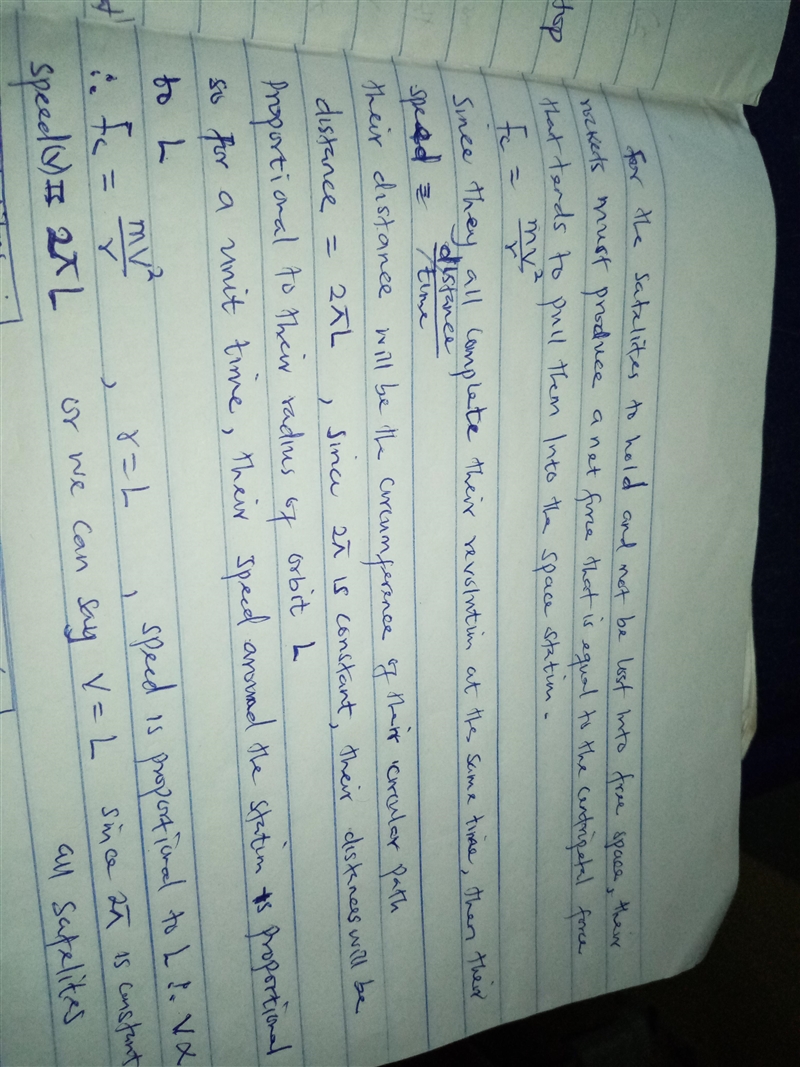 For the satelites to hold and not be lost into free space, their
rockets must produce a net force that is equal to the centripetal force
that tends to pull them into the space station.
Fc = mv²/r
Since they all complete their revolution at the same time, then their
speed = distance/time
their distance will be the circumference of their circular path
distance = 2πL , since 2π is constant, their distances will be
proportional to their radius of orbit L
so for a unit time, their speed around the station is proportional
to L
∴ Fc = mv²/r , r = L , speed is proportional to L ∴ V ∝
speed(v) = 2πL or we can say V = L since 2π is constant
all satelites
top